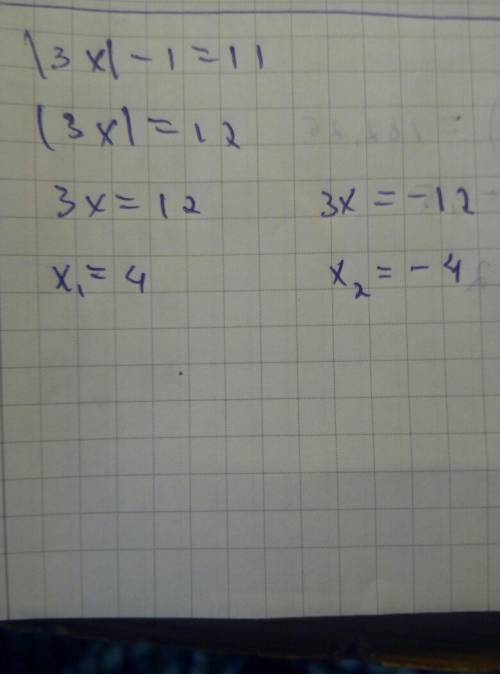 |3x| - 1 = 11
|3x| = 12
3x = 12 3x = -12
x₁ = 4 x₂ = -4